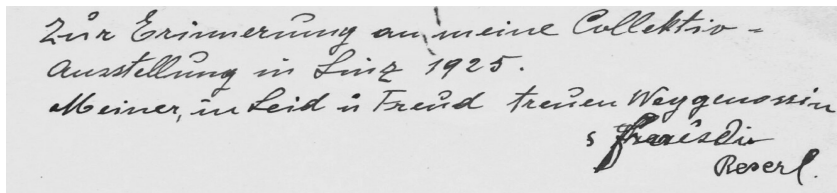 Zur Erinnerung an meine Collektiv-
Ausstellung in Linz 1925.
Meiner, in Leid u Freud treuen Weggenossin
s
Reserl.